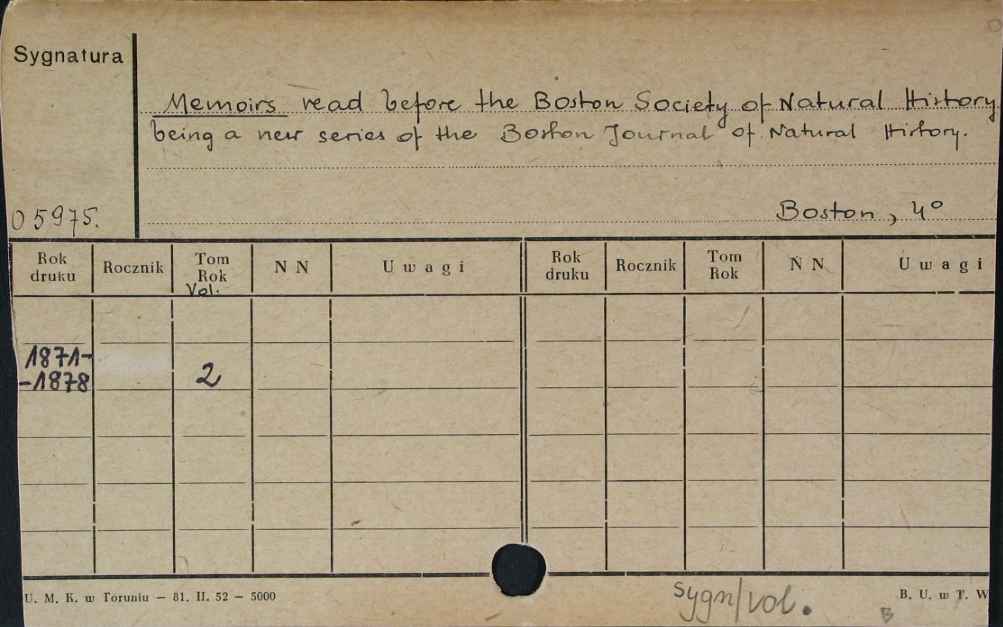 Sygnatura
Memoirs read before the Boston Society of Natural History
being a new series of the Boston Journal of Natural History.
05975.
Boston, 4°
Rok druku Rocznik Tom Rok Vol. N N Uwagi Rok druku Rocznik Tom Rok N N Uwagi
1871-
-1878 2
U. M. K. w Toruniu — 81. II. 52 — 5000
sygn/vol.
B
B. U. w T. W